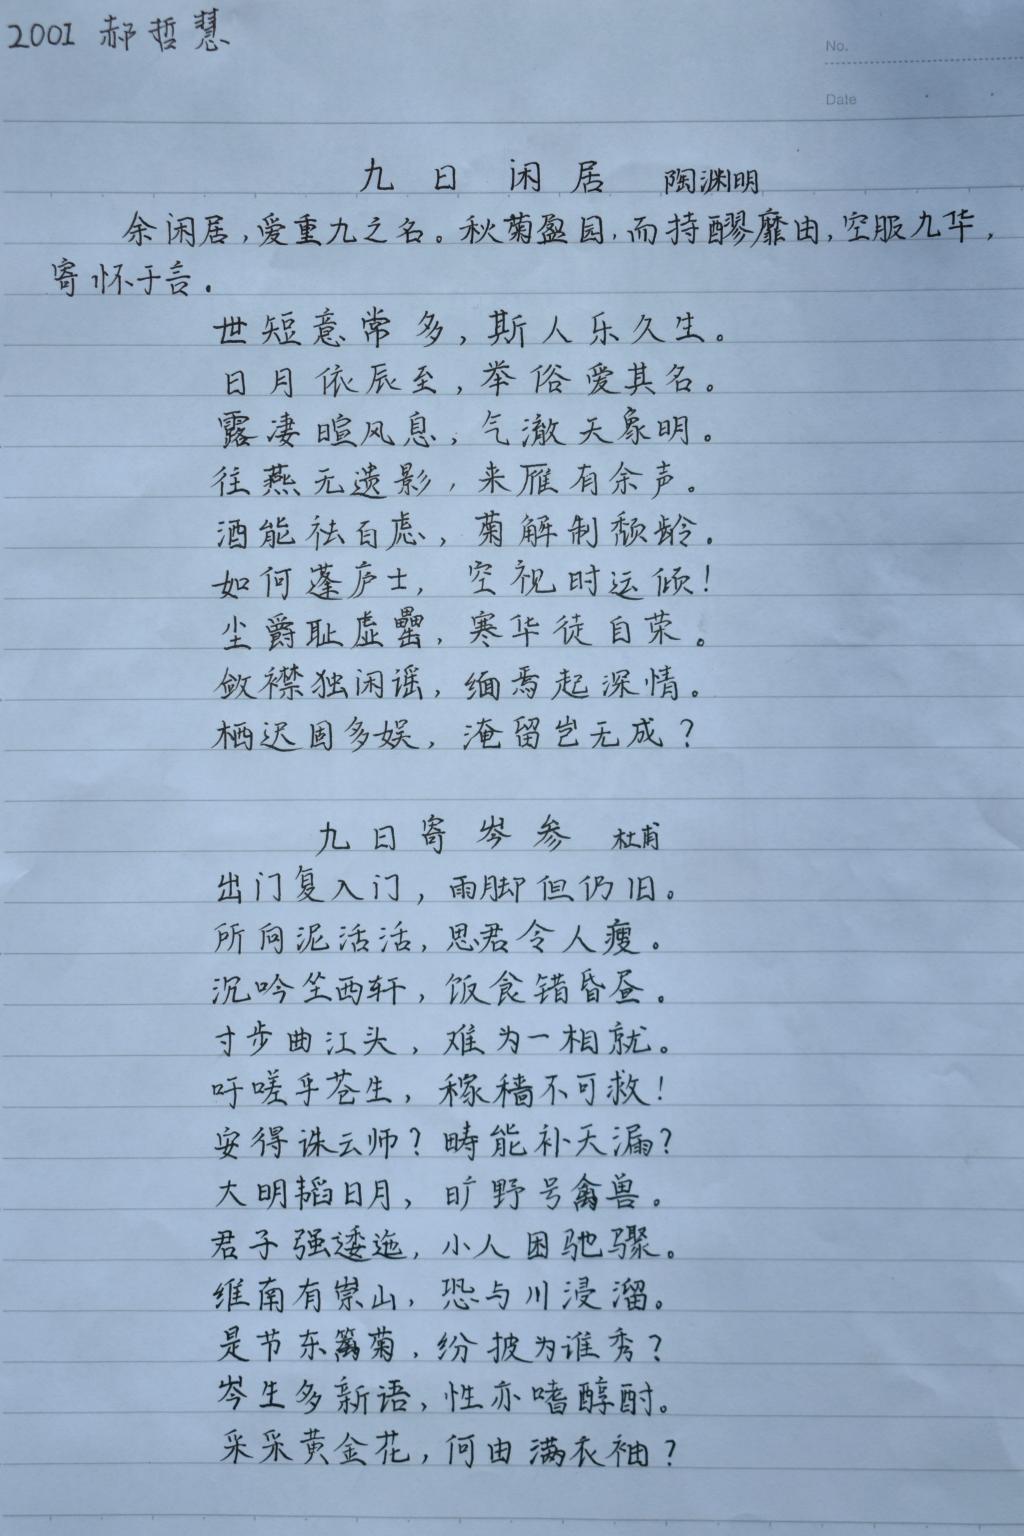 2001 郝哲慧
No.
Date
九日闲居 陶渊明
余闲居,爱重九之名。秋菊盈园,而持醪靡由,空服九华,
寄怀于言.
世短意常多,斯人乐久生。
日月依辰至,举俗爱其名。
露凄暄风息,气澈天象明。
往燕无遗影,来雁有余声。
酒能祛百虑,菊解制颓龄.
如何蓬庐士,空视时运倾!
尘爵耻虚罍,寒华徒自荣。
敛襟独闲谣,缅焉起深情。
栖迟固多娱,淹留岂无成?
九日寄岑参 杜甫
出门复入门,雨脚但仍旧。
所向泥活活,思君令人瘦.
沉吟坐西轩,饭食错昏昼。
寸步曲江头,难为一相就。
吁嗟乎苍生,稼穑不可救!
安得诛云师?畴能补天漏?
大明韬日月,旷野号禽兽.
君子强逶迤,小人困驰骤。
维南有崇山,恐与川浸溜。
是节东篱菊,纷披为谁秀?
岑生多新语,性亦嗜醇酎。
采采黄金花,何由满衣袖?